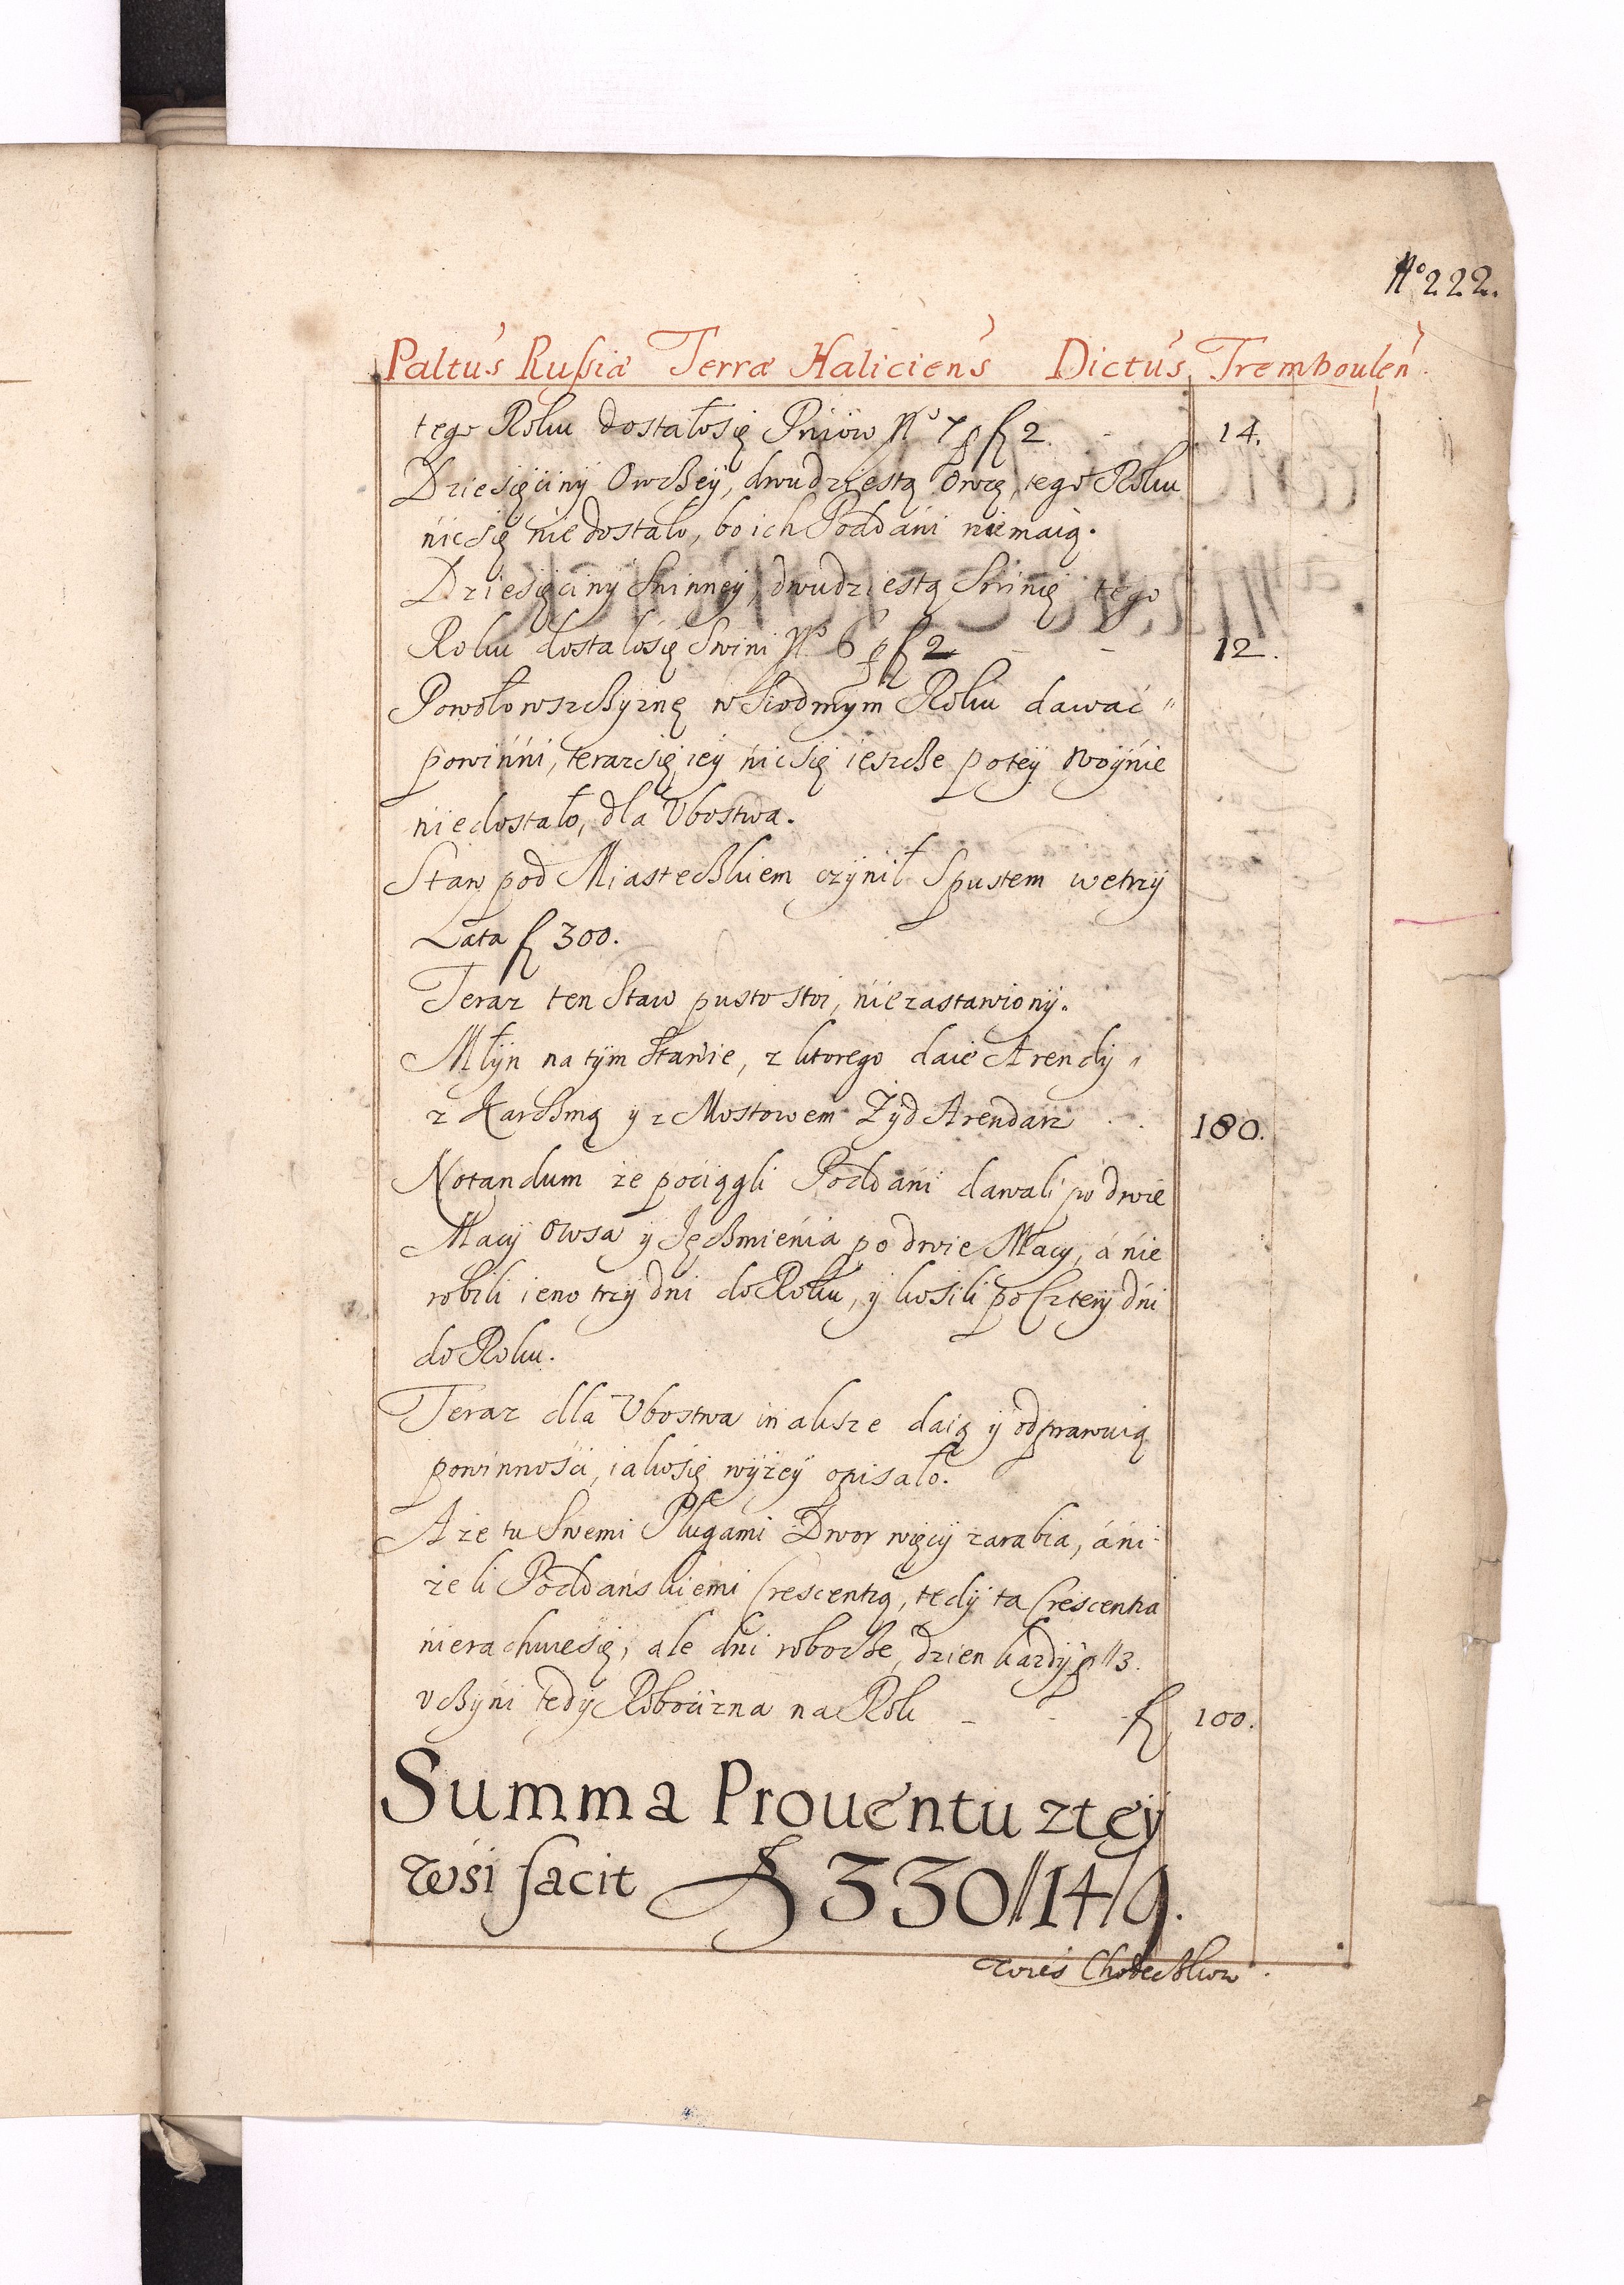 No 222.
Paltus Russiæ Terræ Haliciens Dictus Tremboulen
tego Roku dostałosię Pniow No 7 p f 2. 14.
Dziesięciny Owczey, dwudziestą owcę, tego Roku
nicsię nie dostało, bo ich Poddani niemaią.
Dziesięciny Swinney, dwudziestą Swinię tego
Roku dostalosię Swini No 6 p f 2 - - 12.
Powołowszczyznę w Siodmym Roku dawać
powinni, terazsię iey nicsię ieszcze potey woynie
niedostało, dla Vbostwa.
Staw pod Miasteczkiem czynił Spustem wetrzy
Lata f 300.
Teraz ten Staw pusto stoi, niezastawiony.
Młyn na tym Stawie, z ktorego daie Arendy
z Karczmą y z Mostowem Żyd Arendarz . . 180.
Notandum że pociągli Poddani dawali po dwie
Macy Owsa y Jęczmienia po dwie Macy, á nie
robili ieno trzy dni do Roku, y kosili po Cztery dni
do Roku.
Teraz dla Vbostwa inaksze daią y odprawuią
powinnosci, iakosię wyżey opisało.
A że tu Swemi Pługami Dwor więcy zarabia, áni
żeli Poddańskiemi Crescentią, tedy ta Crescentia
nierachuiesię, ale dni robocze, dzien każdy p // 3.
vczyni tedy Robocizna na Rok - - f 100.
Summa Prouentu ztey
wsi facit f 330 // 14 / 9.
Wies Chodeczkow.